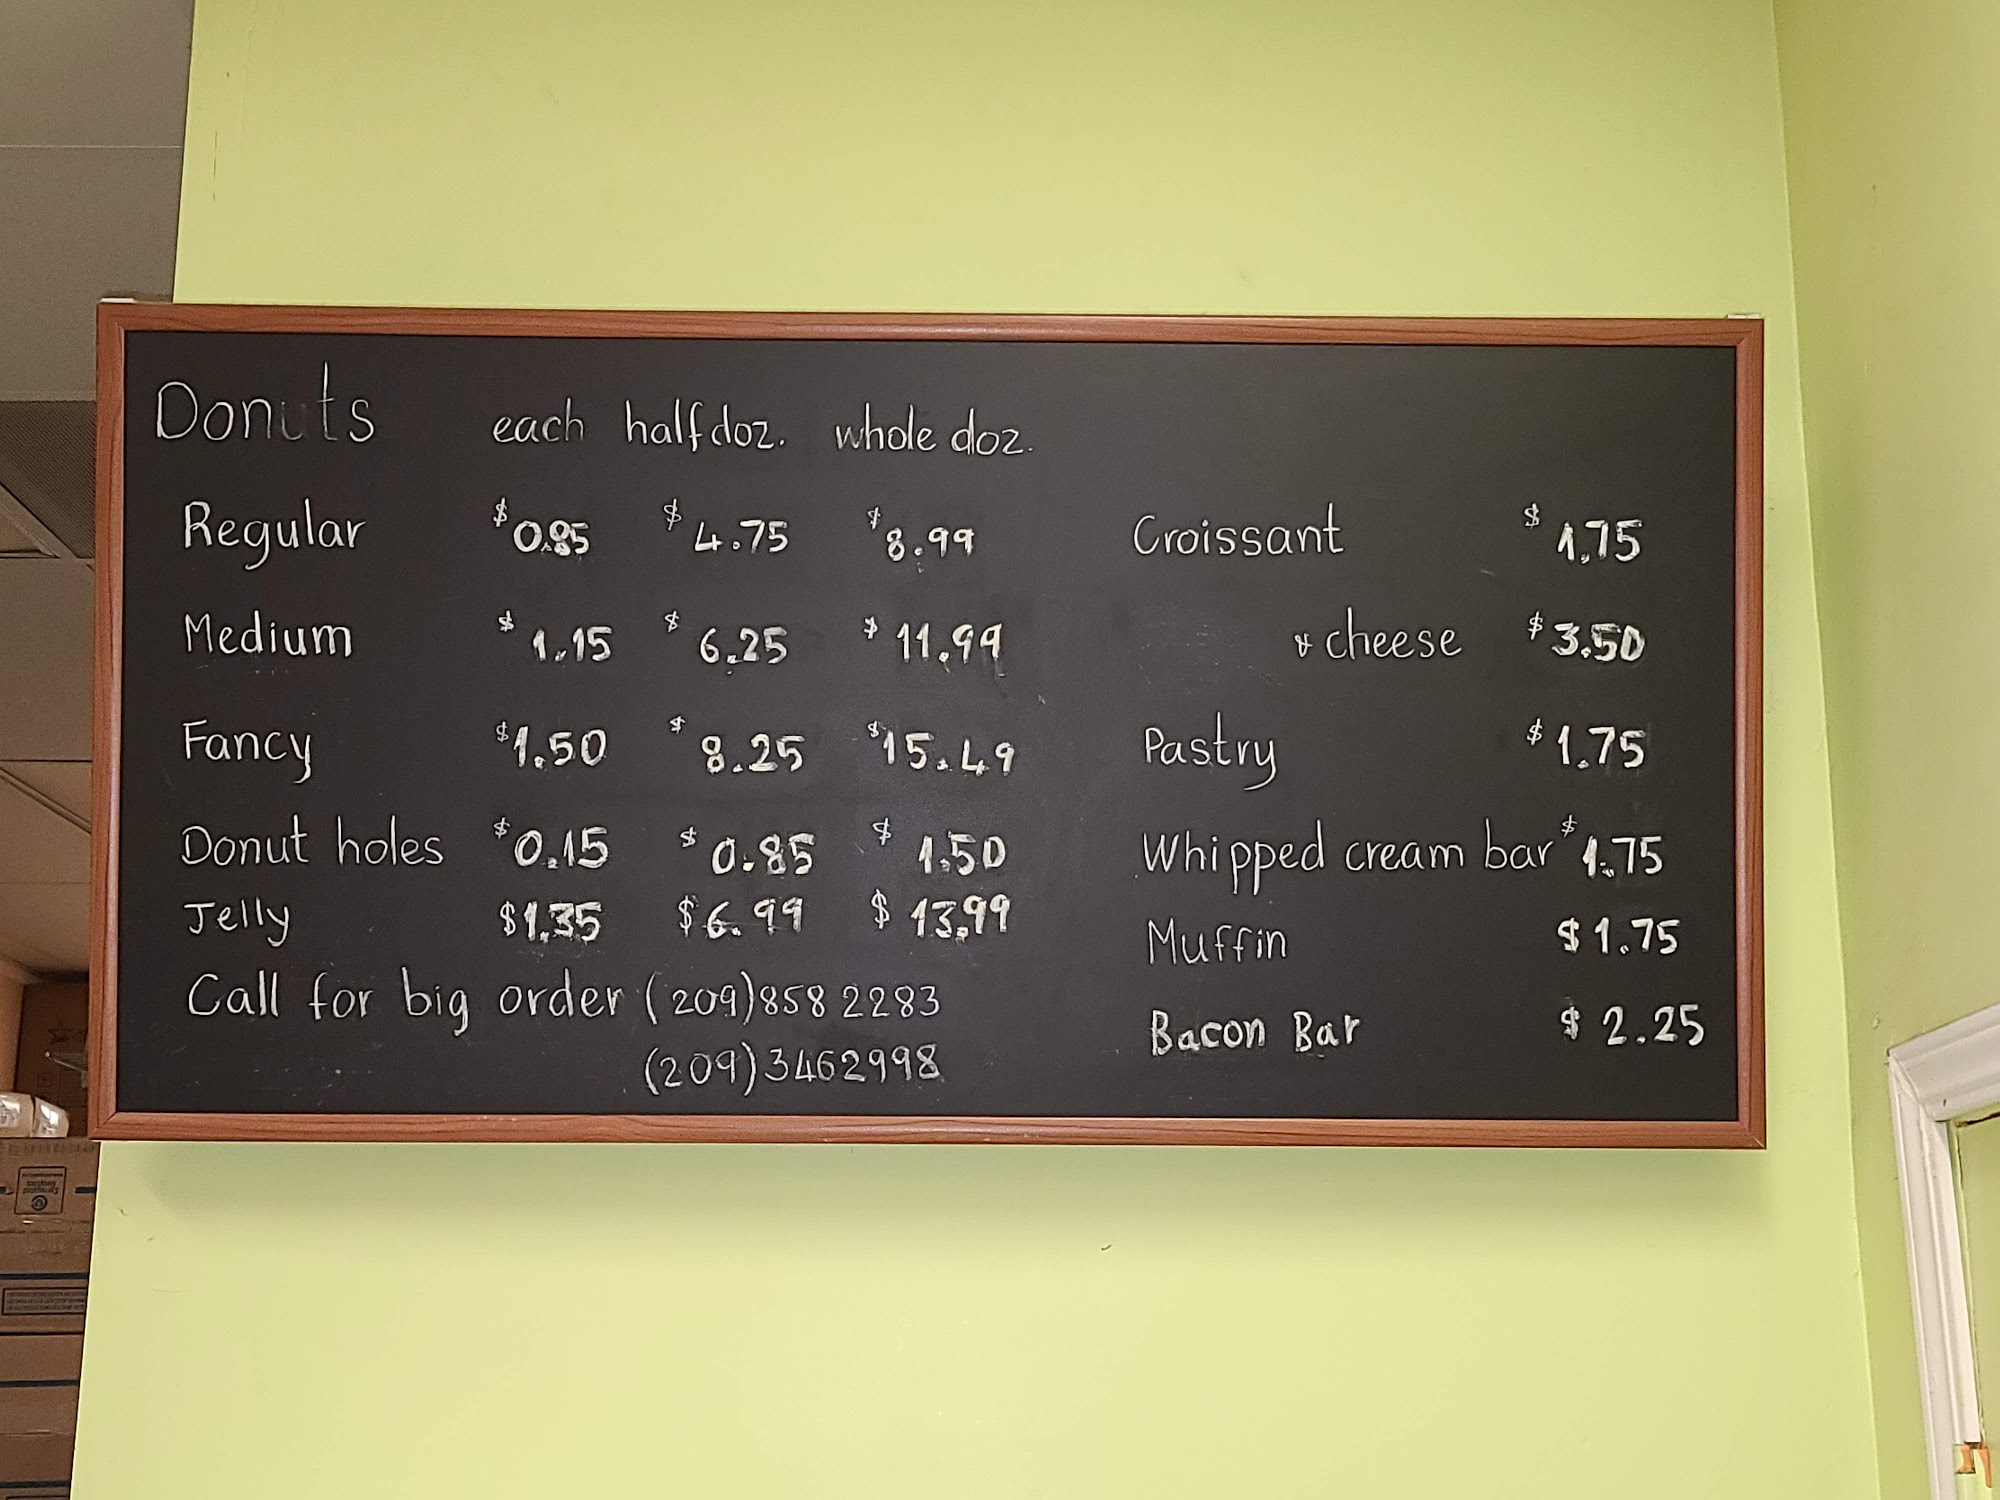 Donuts each half doz. whole doz.
Regular $0.85 $4.75 $8.99
Medium $1.15 $6.25 $11.99
Fancy $1.50 $8.25 $15.49
Donut holes $0.15 $0.85 $1.50
Jelly $1.35 $6.99 $13.99
Call for big order (209)858 2283
(209)3462998
Croissant $1.75
& cheese $3.50
Pastry $1.75
Whipped cream bar $1.75
Muffin $1.75
Bacon Bar $2.25